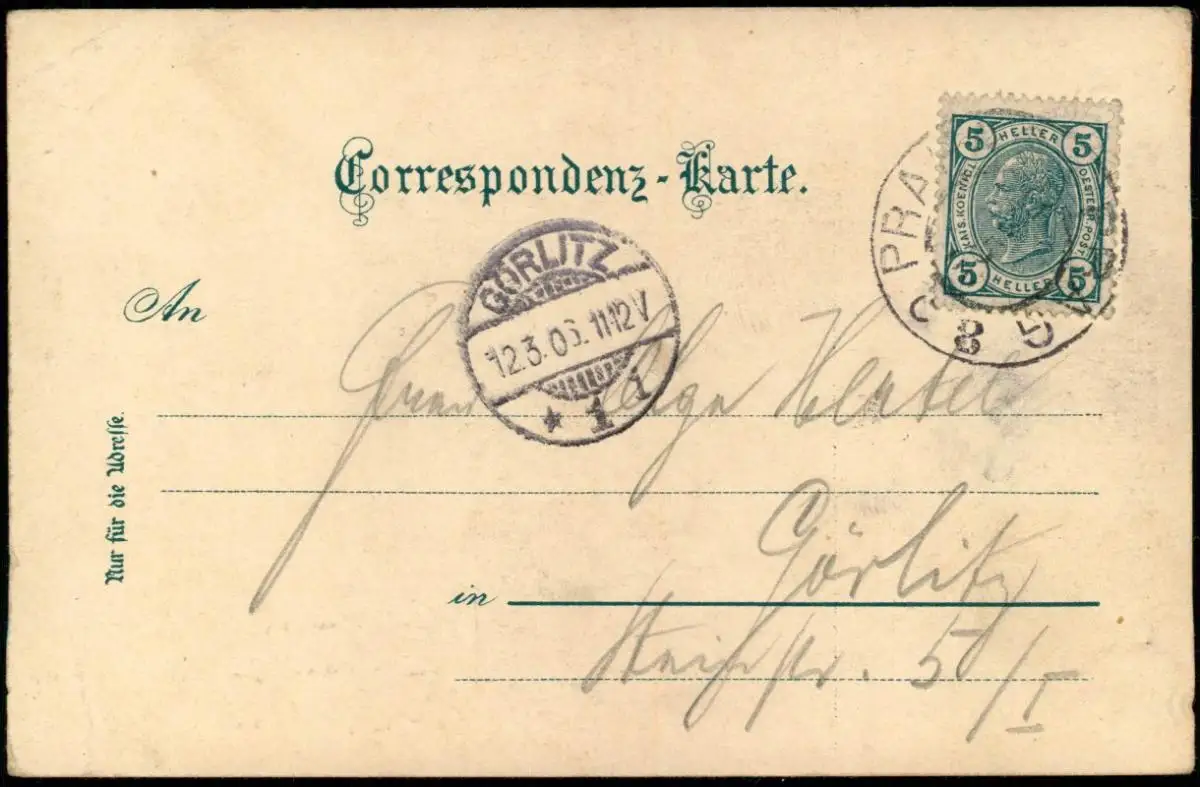 Correspondenz-Karte.
5 HELLER 5
KAIS. KOENIGL.
OESTERR. POST.
5 HELLER 5
PRA
8 5
GÖRLITZ
12.3.05. 11-12 V
* 1 i
An
Nur für die Adresse.
Olga
in Görlitz
5/I